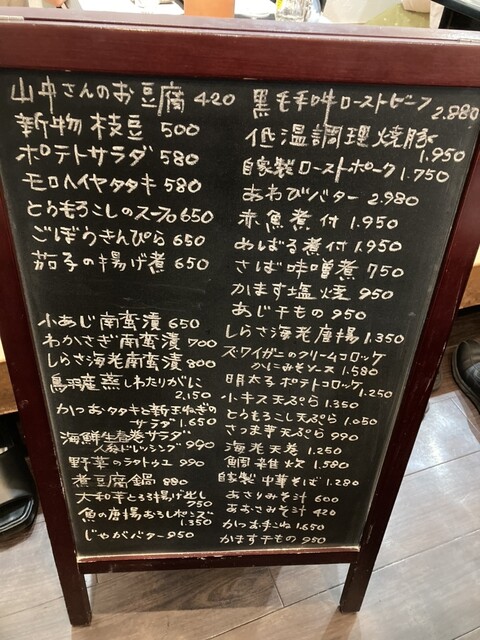 山中さんのお豆腐 420
新物枝豆 500
ポテトサラダ 580
モロヘイヤタタキ 580
とうもろこしのスープ 650
ごぼうきんぴら 650
茄子の揚げ煮 650
小あじ南蛮漬 650
わかさぎ南蛮漬 700
しらさ海老南蛮漬 800
鳥羽産蒸しわたりがに
2,150
かつおタタキと新玉ねぎの
サラダ 1.650
海鮮生春巻サラダ
人参ドレッシング 990
野菜のラタトゥユ 990
煮豆腐鍋 880
大和芋とろろ揚げ出し
750
魚の唐揚おろしポンズ
1.350
じゃがバター 950
黒毛和牛ローストビーフ 2.880
低温調理焼豚
1.950
自家製ローストポーク 1.750
あわびバター 2.980
赤魚煮付 1.950
めばる煮付 1.950
さば味噌煮 750
かます塩焼 950
あじ干もの 950
しらさ海老唐揚 1.350
ズワイガニのクリームコロッケ
かにみそソース 1.580
明太子ポテトコロッケ 1.250
小キス天ぷら 1.350
とうもろこし天ぷら 1.050
さつま芋天ぷら 990
海老天巻 1.250
鯛雑炊 1.580
自家製中華そば 1.280
あさりみそ汁 600
あおさみそ汁 420
かつお手こね 1.650
かます干もの 950